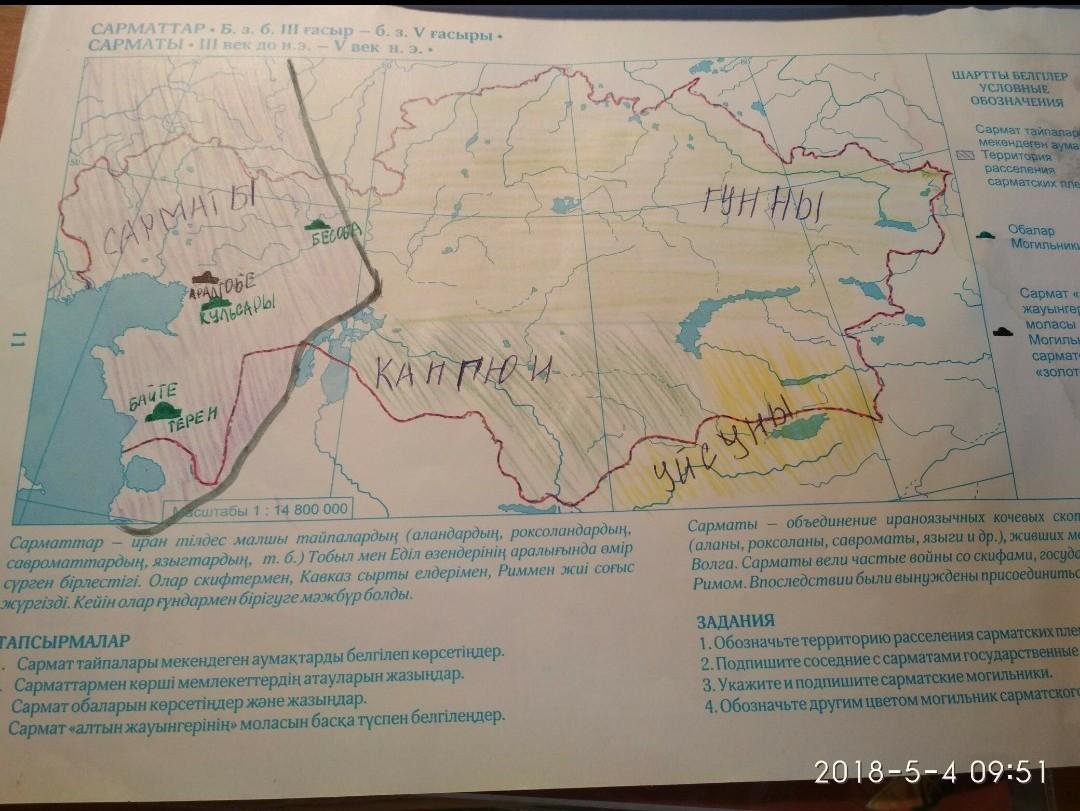 САРМАТТАР • Б. з. б. III ғасыр – б. з. V ғасыры •
САРМАТЫ • III век до н.э. – V век н. э. •
60
80
50
ШАРТТЫ БЕЛГІЛЕР
УСЛОВНЫЕ
ОБОЗНАЧЕНИЯ
Сармат тайпалар
мекендеген аума
Территория
расселения
сарматских пле
Обалар
Могильники
Сармат «
жауынгер
моласы
Могиль
сармат
«золот
САРМАТЫ
ГУННЫ
БЕСОБА
АРАЛТОБЕ
КУЛЬСАРЫ
КАНГЮИ
БАЙТЕ
ТЕРЕН
УЙСУНЫ
11
Масштабы 1 : 14 800 000
Сарматтар – иран тілдес малшы тайпалардың (аландардың, роксоландардың,
савроматтардың, языгтардың, т. б.) Тобыл мен Еділ өзендерінің аралығында өмір
сүрген бірлестігі. Олар скифтермен, Кавказ сырты елдерімен, Риммен жиі соғыс
жүргізді. Кейін олар ғұндармен бірігуге мәжбүр болды.
Сарматы – объединение ираноязычных кочевых скот
(аланы, роксоланы, савроматы, языги и др.), живших ме
Волга. Сарматы вели частые войны со скифами, госуда
Римом. Впоследствии были вынуждены присоединитьс
ТАПСЫРМАЛАР
Сармат тайпалары мекендеген аумақтарды белгілеп көрсетіңдер.
Сарматтармен көрші мемлекеттердің атауларын жазыңдар.
Сармат обаларын көрсетіңдер және жазыңдар.
Сармат «алтын жауынгерінің» моласын басқа түспен белгілеңдер.
ЗАДАНИЯ
1. Обозначьте территорию расселения сарматских плем
2. Подпишите соседние с сарматами государственные
3. Укажите и подпишите сарматские могильники.
4. Обозначьте другим цветом могильник сарматского
2018-5-4 09:51